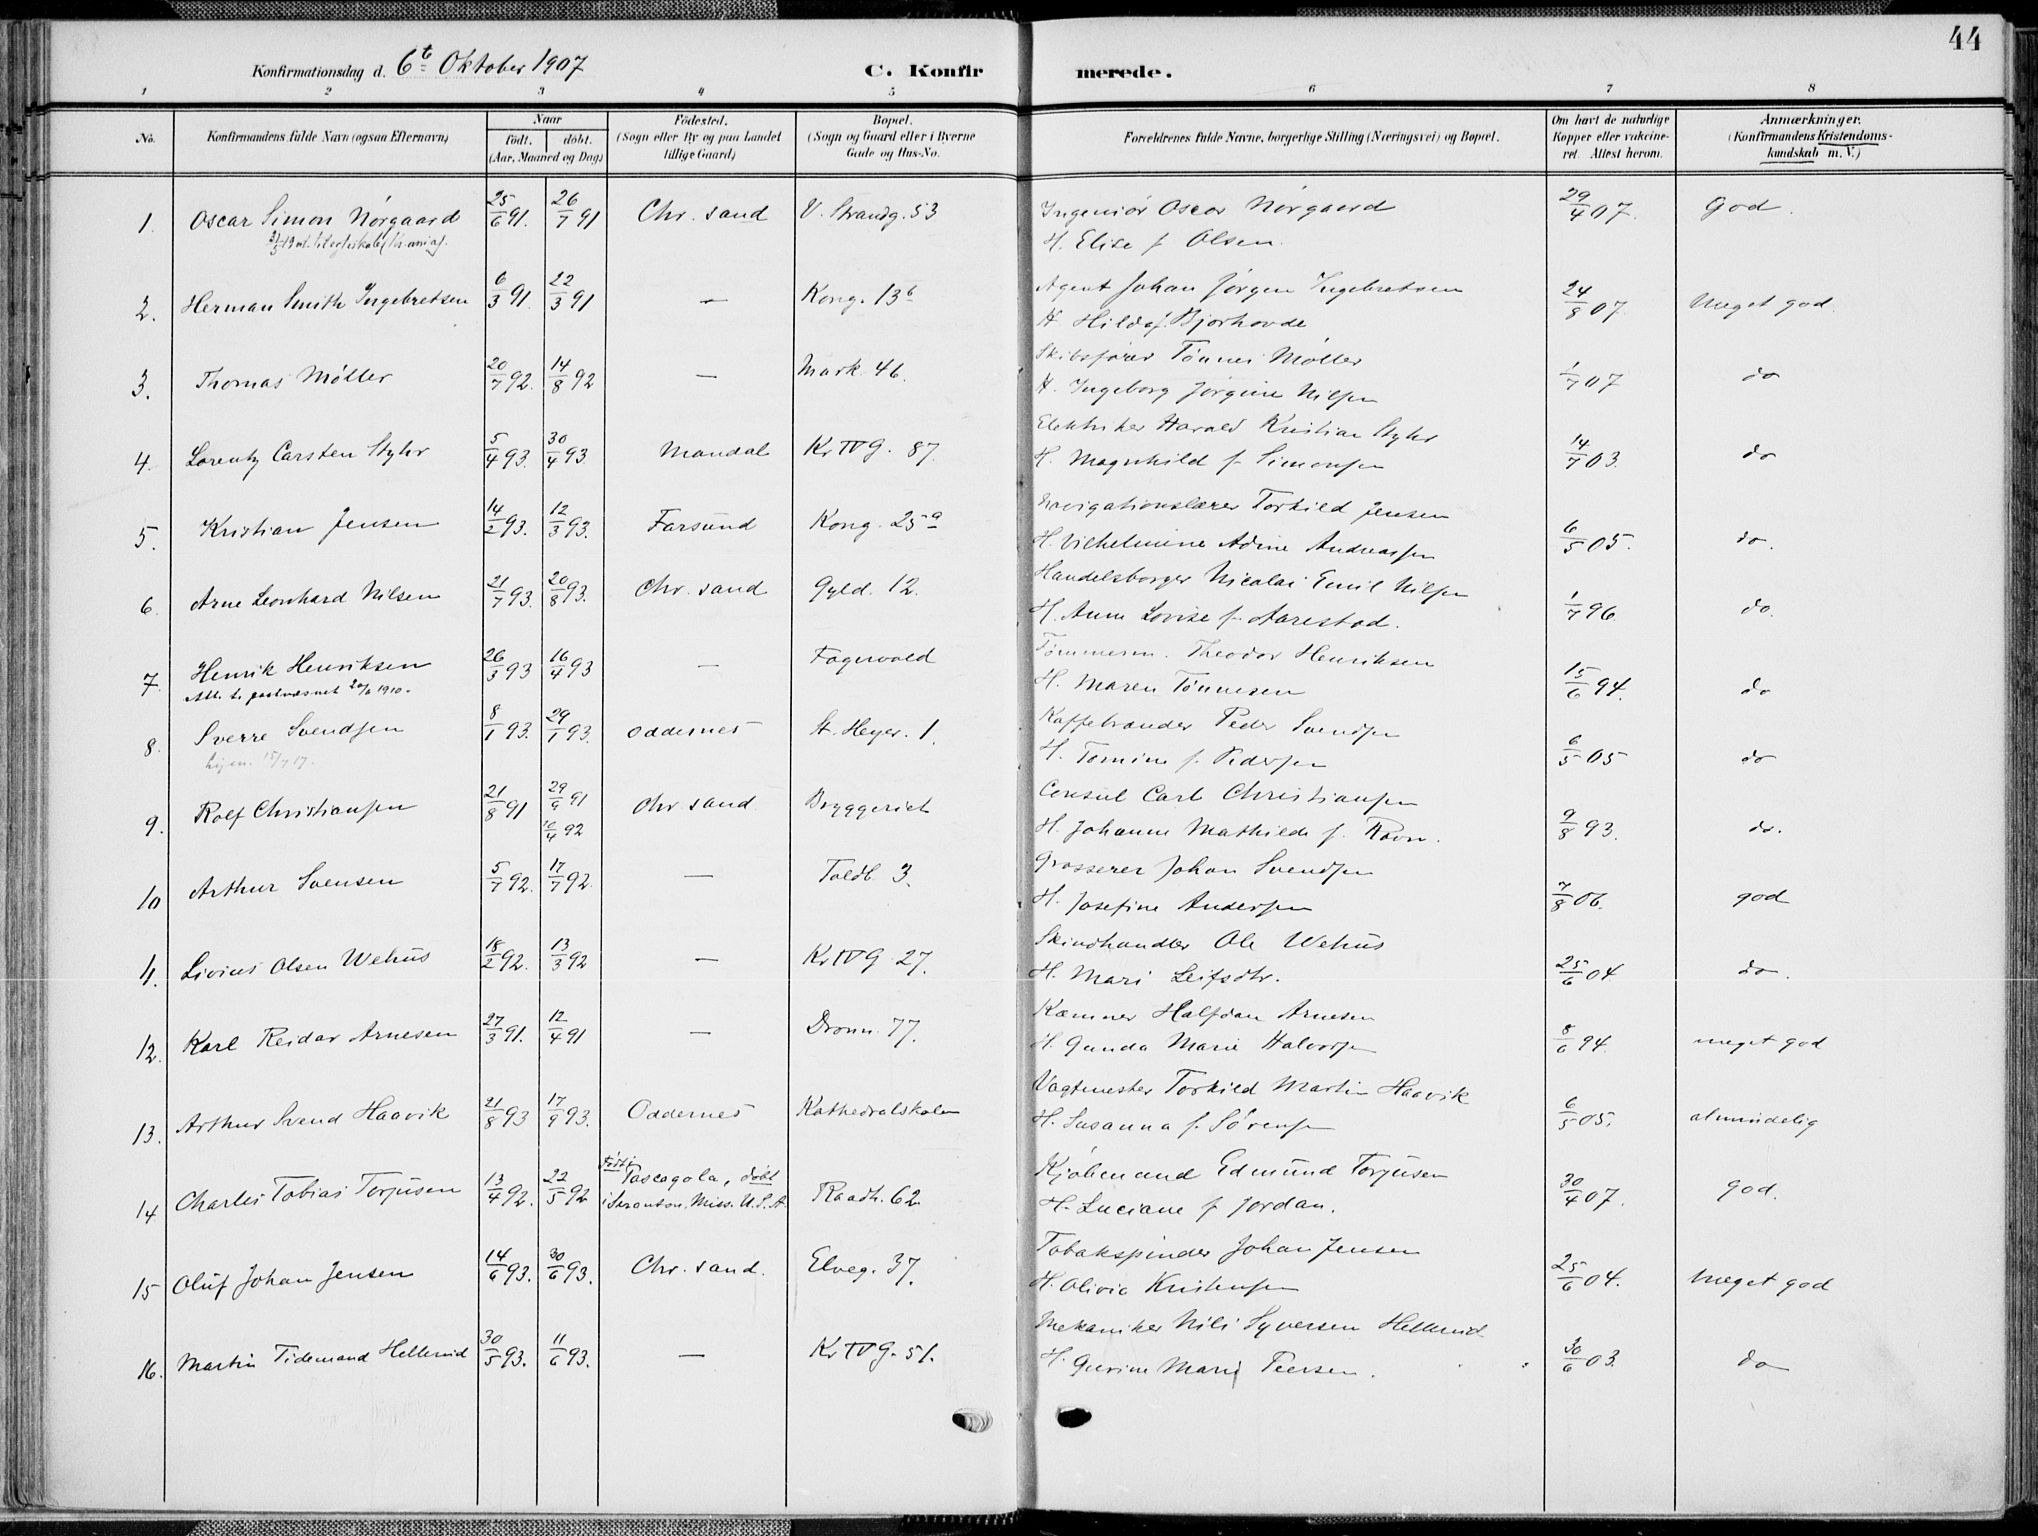 44
Konfirmationsdag d. 6t Oktober 1907
C. Konfirmerede.
1 2 3 4 5 6 7 8
No. Konfirmandens fulde Navn (ogsaa Efternavn) Naar født. døbt. (Aar, Maaned og Dag) Fødested. (Sogn eller By og paa Landet tillige Gaard) Bopæl. (Sogn og Gaard eller i Byerne Gade og Hus-No. Forældrenes fulde Navne, borgerlige Stilling (Næringsvei) og Bopæl. Om havt de naturlige Kopper eller vaccineret. Attest herom. Anmærkninger. (Konfirmandens Kristendomskundskab m. V.)
1. Oscar Simon Nørgaard 25/6 91. 26/7 91 Chr. sand V. Strandg. 53 Ingeniør Oscar Nørgaard 29/4 07. God.
H. Elise f. Olsen.
2. Herman Smith Ingebretsen 6/3 91. 22/3 91 — Kong. 13b Agent Johan Jørgen Ingebretsen 24/8 07. Meget god.
H Hilda f. Bjorhovde
3. Thomas Møller 20/7 92. 14/8 92 — Mark. 46. Skibsfører Tønnes Møller 1/7 07 do
H. Ingeborg Jørgine Nilsen
4. Lorentz Carsten Styhr 5/4 93. 30/4 93. Mandal Kr IV G. 87. Elektriker Harald Kristian Styhr 14/7 03. do
H. Magnhild f. Simonsen
5. Kristian Jensen 14/2 93. 12/3 93. Farsund Kong. 25a Navigationslærer Torkild Jensen 6/5 05. do.
H. Vilhelmine Adine Andreassen
6. Arne Leonhard Nilsen 21/7 93. 20/8 93. Chr. sand Gyld. 12. Handelsborger Nicolai Emil Nilsen 1/7 96. do.
H. Anne Lovise f. Aarestad.
7. Henrik Henriksen 26/3 93 16/4 93 — Fagervold Tømmerm. Theodor Henriksen 15/6 94. do
H. Maren Tønnesen
8. Sverre Svendsen 8/1 93. 29/1 93. Oddernes St. Heyer. 1. Kaffebrænder Peder Svendsen 6/5 05 do
H. Tomine f. Pedersen
9. Rolf Christiansen 21/8 91 29/9 91 10/4 92 Chr. sand Bryggeriet Consul Carl Christiansen 9/8 93. do.
H. Johanne Mathilde f. Ravn.
10 Arthur Svensen 5/7 92. 17/7 92. — Toldb. 3. Grosserer Johan Svendsen 7/8 06. god
H. Josefine Andersen
11. Livius Olsen Wehus 18/2 92. 13/3 92 — Kr IV G 27. Skindhandler Ole Wehus 25/6 04 do.
H. Mari Leifsdtr.
12. Karl Reidar Arnesen 27/3 91. 12/4 91 — Dronn. 77. Kæmner Halfdan Arnesen 8/6 94. meget god
H. Gunda Marie Halvorsen
13. Arthur Svend Haavik 21/8 93 17/9 93. Oddernes Kathedralskolen Vagtmester Torkild Martin Haavik 6/5 05. almindelig
H. Susanna f. Sørensen
14 Charles Tobias Torjusen 13/4 92. 22/5 92 Født i Pascagola, døbt i Scranton. Miss. U. S. A. Raadh. 62. Kjøbmand Edmund Torjusen 30/4 07. god.
H. Luciane f. Jordan.
15 Oluf Johan Jensen 14/6 93. 30/6 93. Chr. sand. Elveg. 37. Tobakspinder Johan Jensen 25/6 04. Meget god
H. Olivia Kristensen
16. Martin Tidemand Hellerud 30/5 93. 11/6 93. — Kr IV G. 51. Mekaniker Nils Syversen Hellerud 30/6 03. do
H. Gurine Marie Peersen.